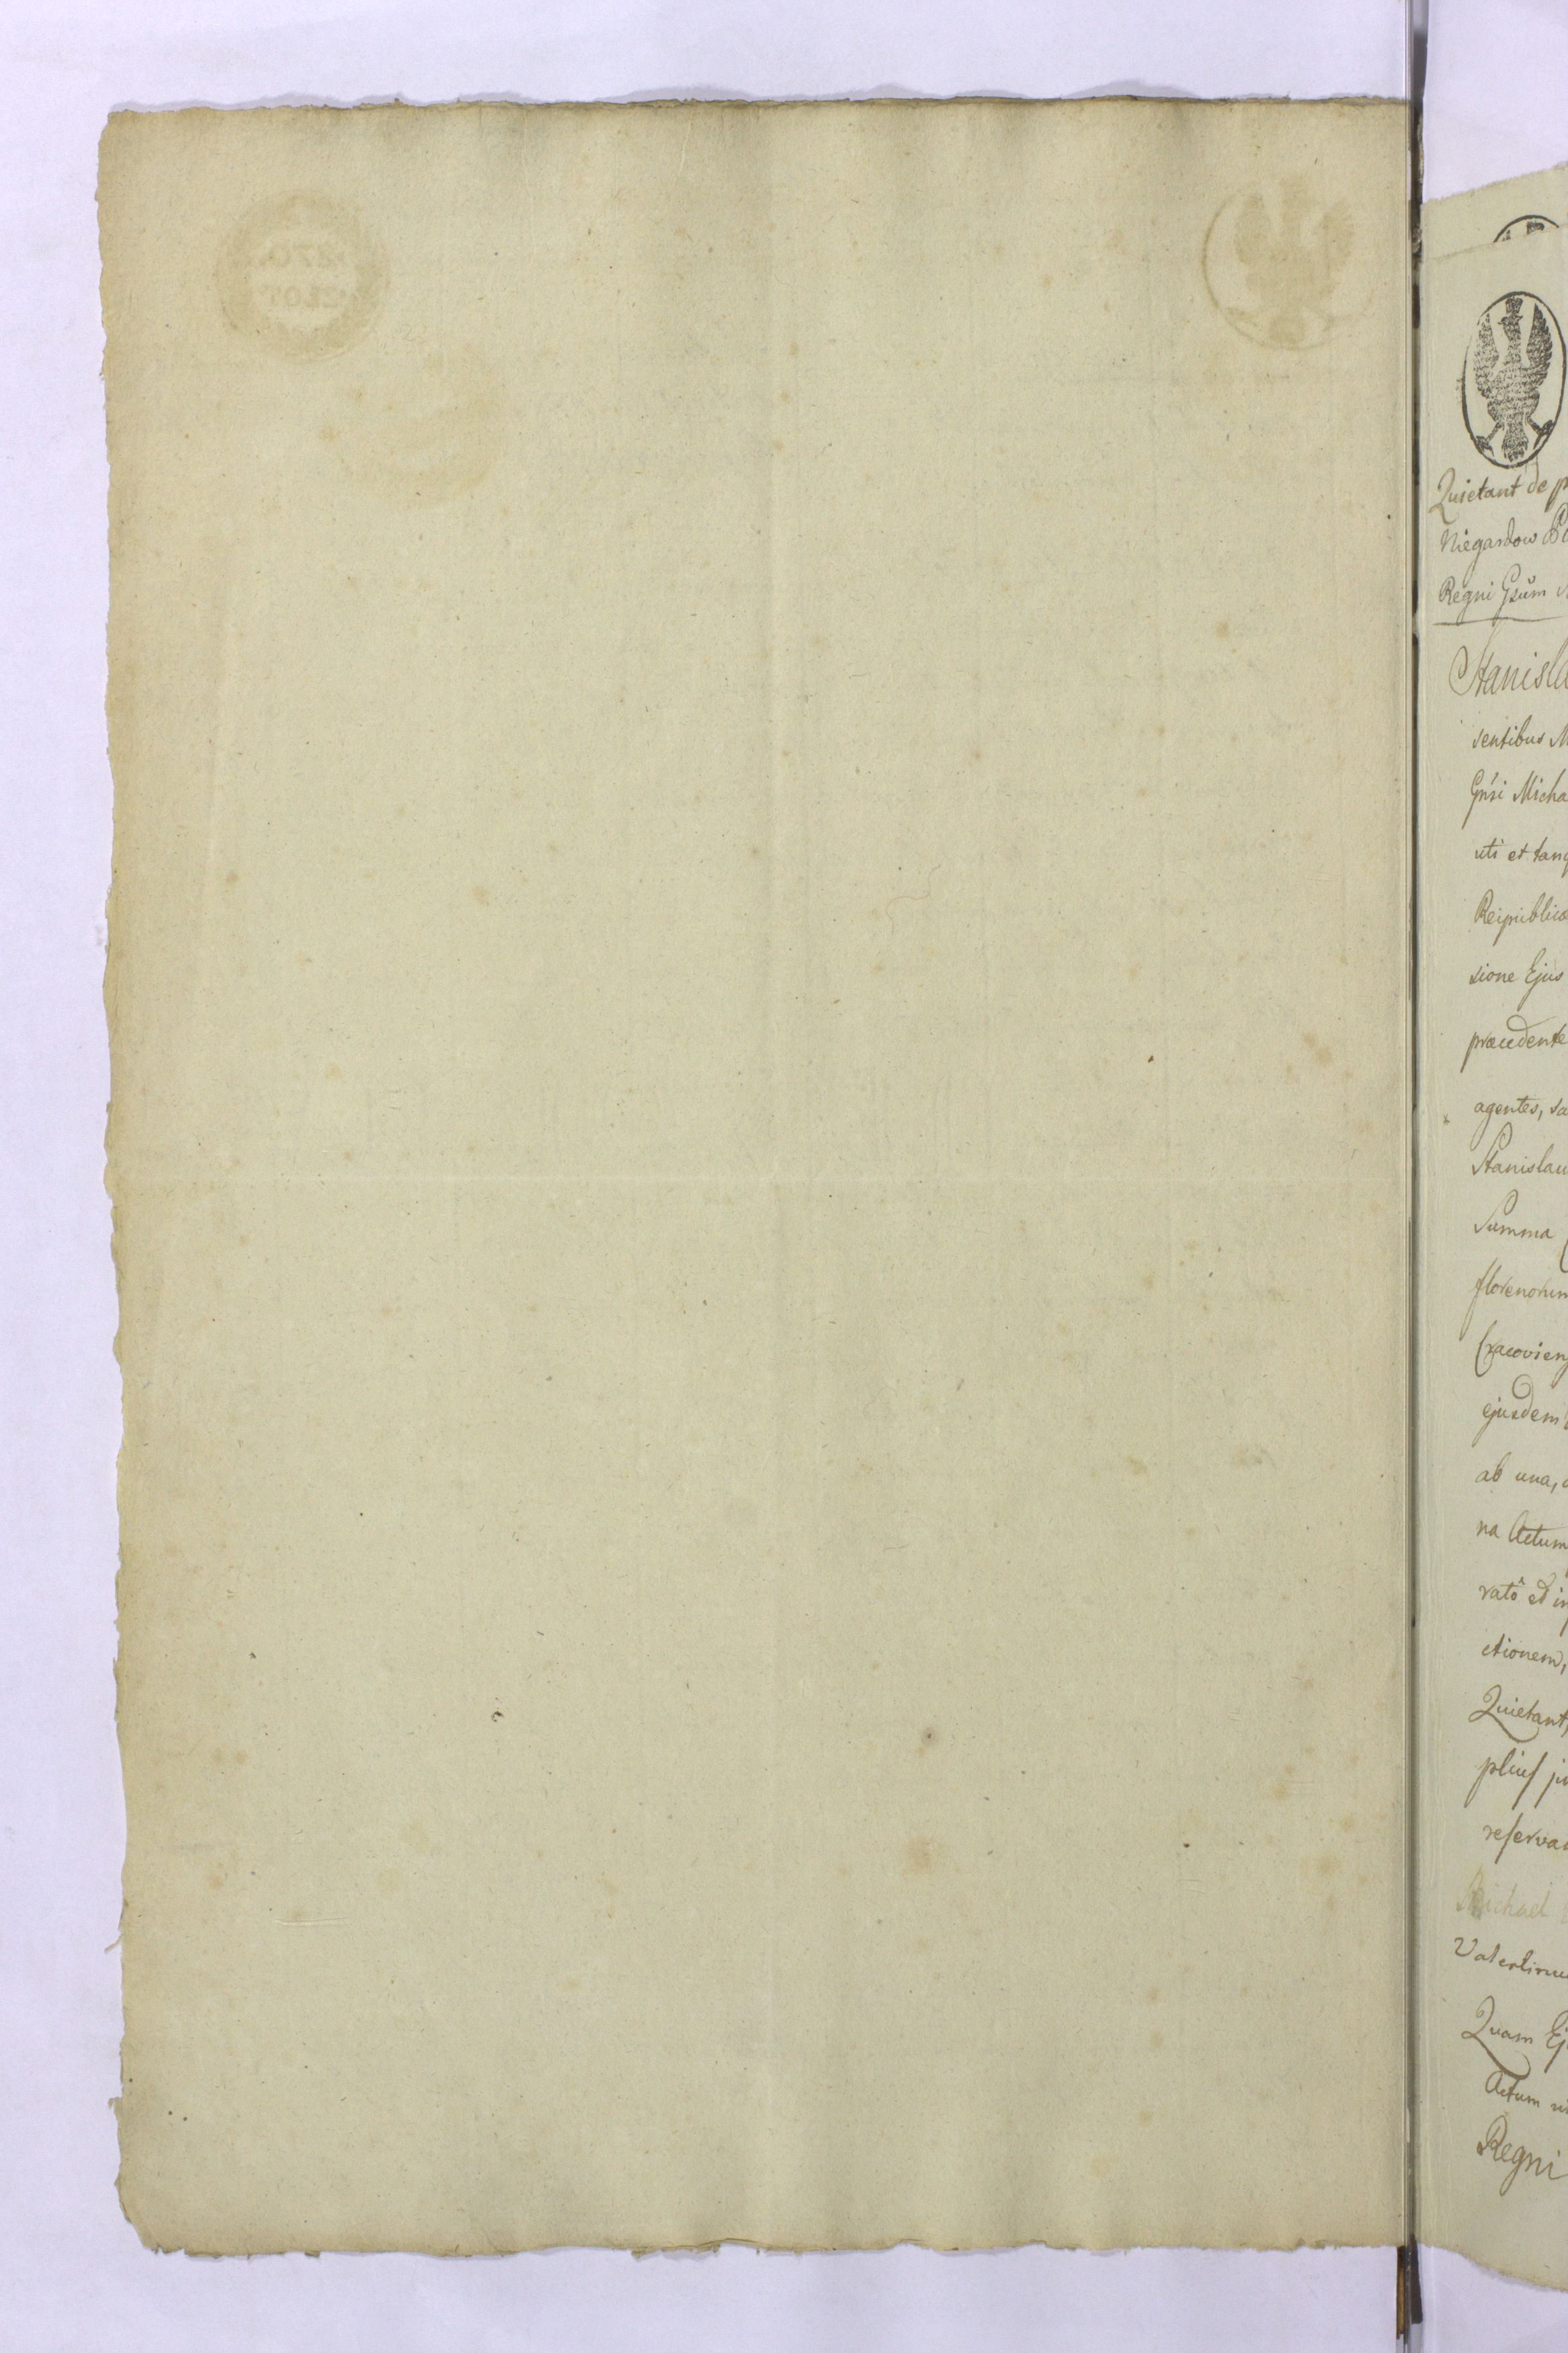 Quietant de
Niegardow
Regni Gsūm
Stanisla
sentibus M
Gnsi Micha
uti et tanq
Reipublicæ
sione Ejus
præcedente
agentes, sa
Stanislau
Summa
florenorum
Cracovien
ejusdem
ab una,
na Actum
ratô et in
ctionem,
Quietant,
pliuſ ju
reſervan
Michael
Valentinu
Quam Ej
Actum
Regni